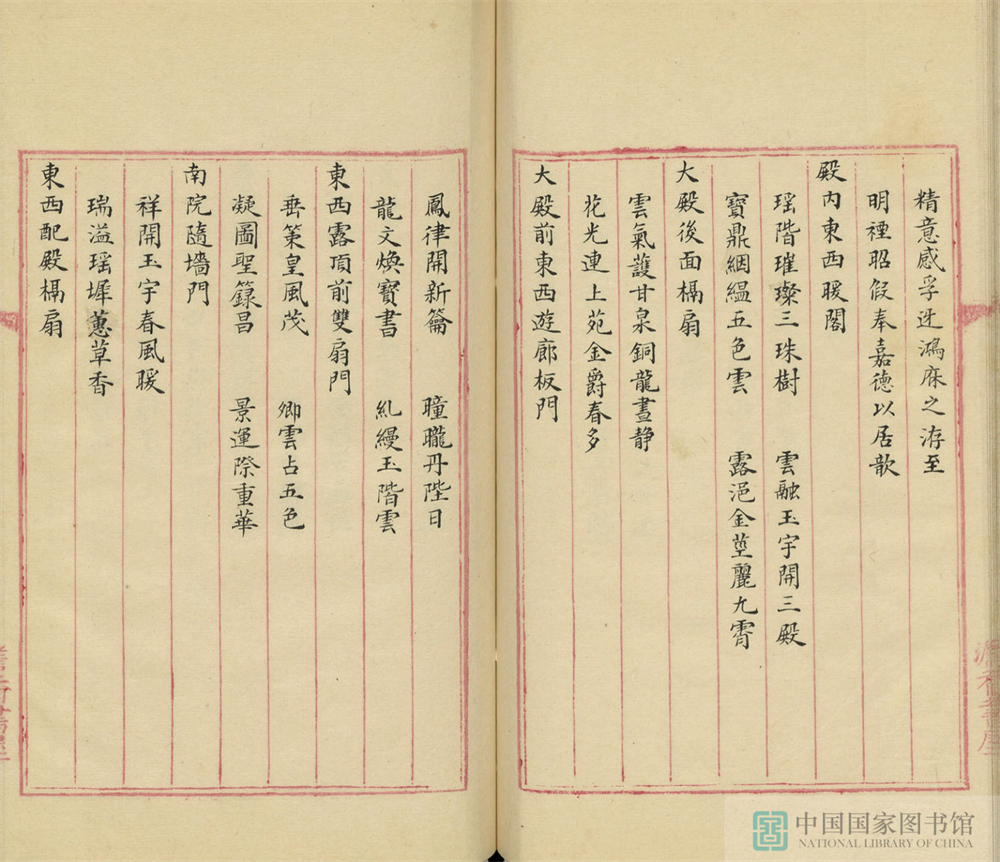 精意感孚迓鴻庥之洊至
明禋昭假奉嘉德以居歆
殿内東西暖閣
瑶階璀璨三珠樹　雲融玉宇開三殿
寶鼎絪緼五色雲　露浥金莖麗九霄
大殿後面槅扇
雲氣護甘泉銅龍晝静
花光連上苑金爵春多
大殿前東西遊廊板門
鳳律開新籥　曈曨丹陛日
龍文煥寶書　糺縵玉階雲
東西露頂前雙扇門
垂策皇風茂　卿雲占五色
凝圖聖籙昌　景運際重華
南院隨墻門
祥開玉宇春風暖
瑞溢瑶墀蕙草香
東西配殿槅扇
中国国家图书馆
NATIONAL LIBRARY OF CHINA